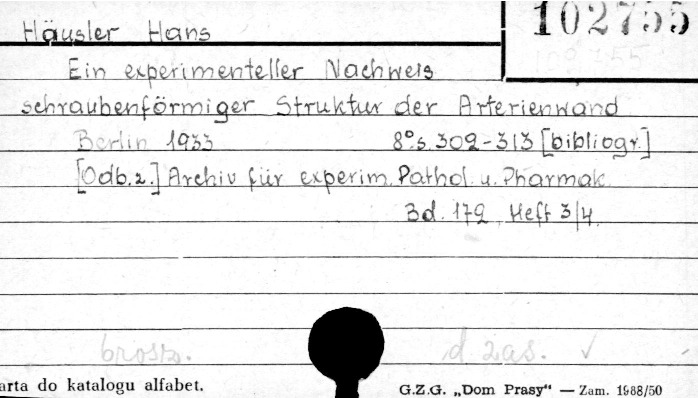 102755
Häusler Hans
Ein experimenteller Nachweis
schraubenförmiger Struktur der Arterienwand
Berlin 1933 8° s. 302-313 [bibliogr.]
[Odb. z.] Archiv für experim. Pathol. u. Pharmak.
Bd. 172, Heft 3/4.
brosz. d zas. ✓
arta do katalogu alfabet. G.Z.G. „Dom Prasy“ — Zam. 1968/50